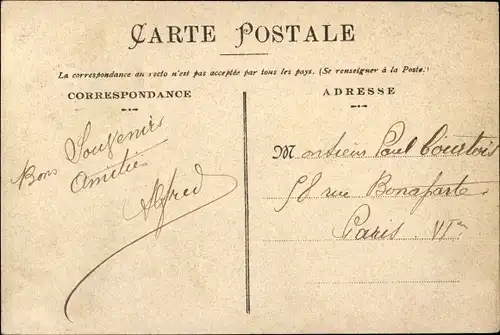 CARTE POSTALE
La correspondance au recto n'est pas acceptée par tous les pays. (Se renseigner à la Poste.)
CORRESPONDANCE
Bons Souvenirs
Amitiés
Alfred
ADRESSE
Monsieur Paul Courtois
58 rue Bonaparte
Paris. VIe